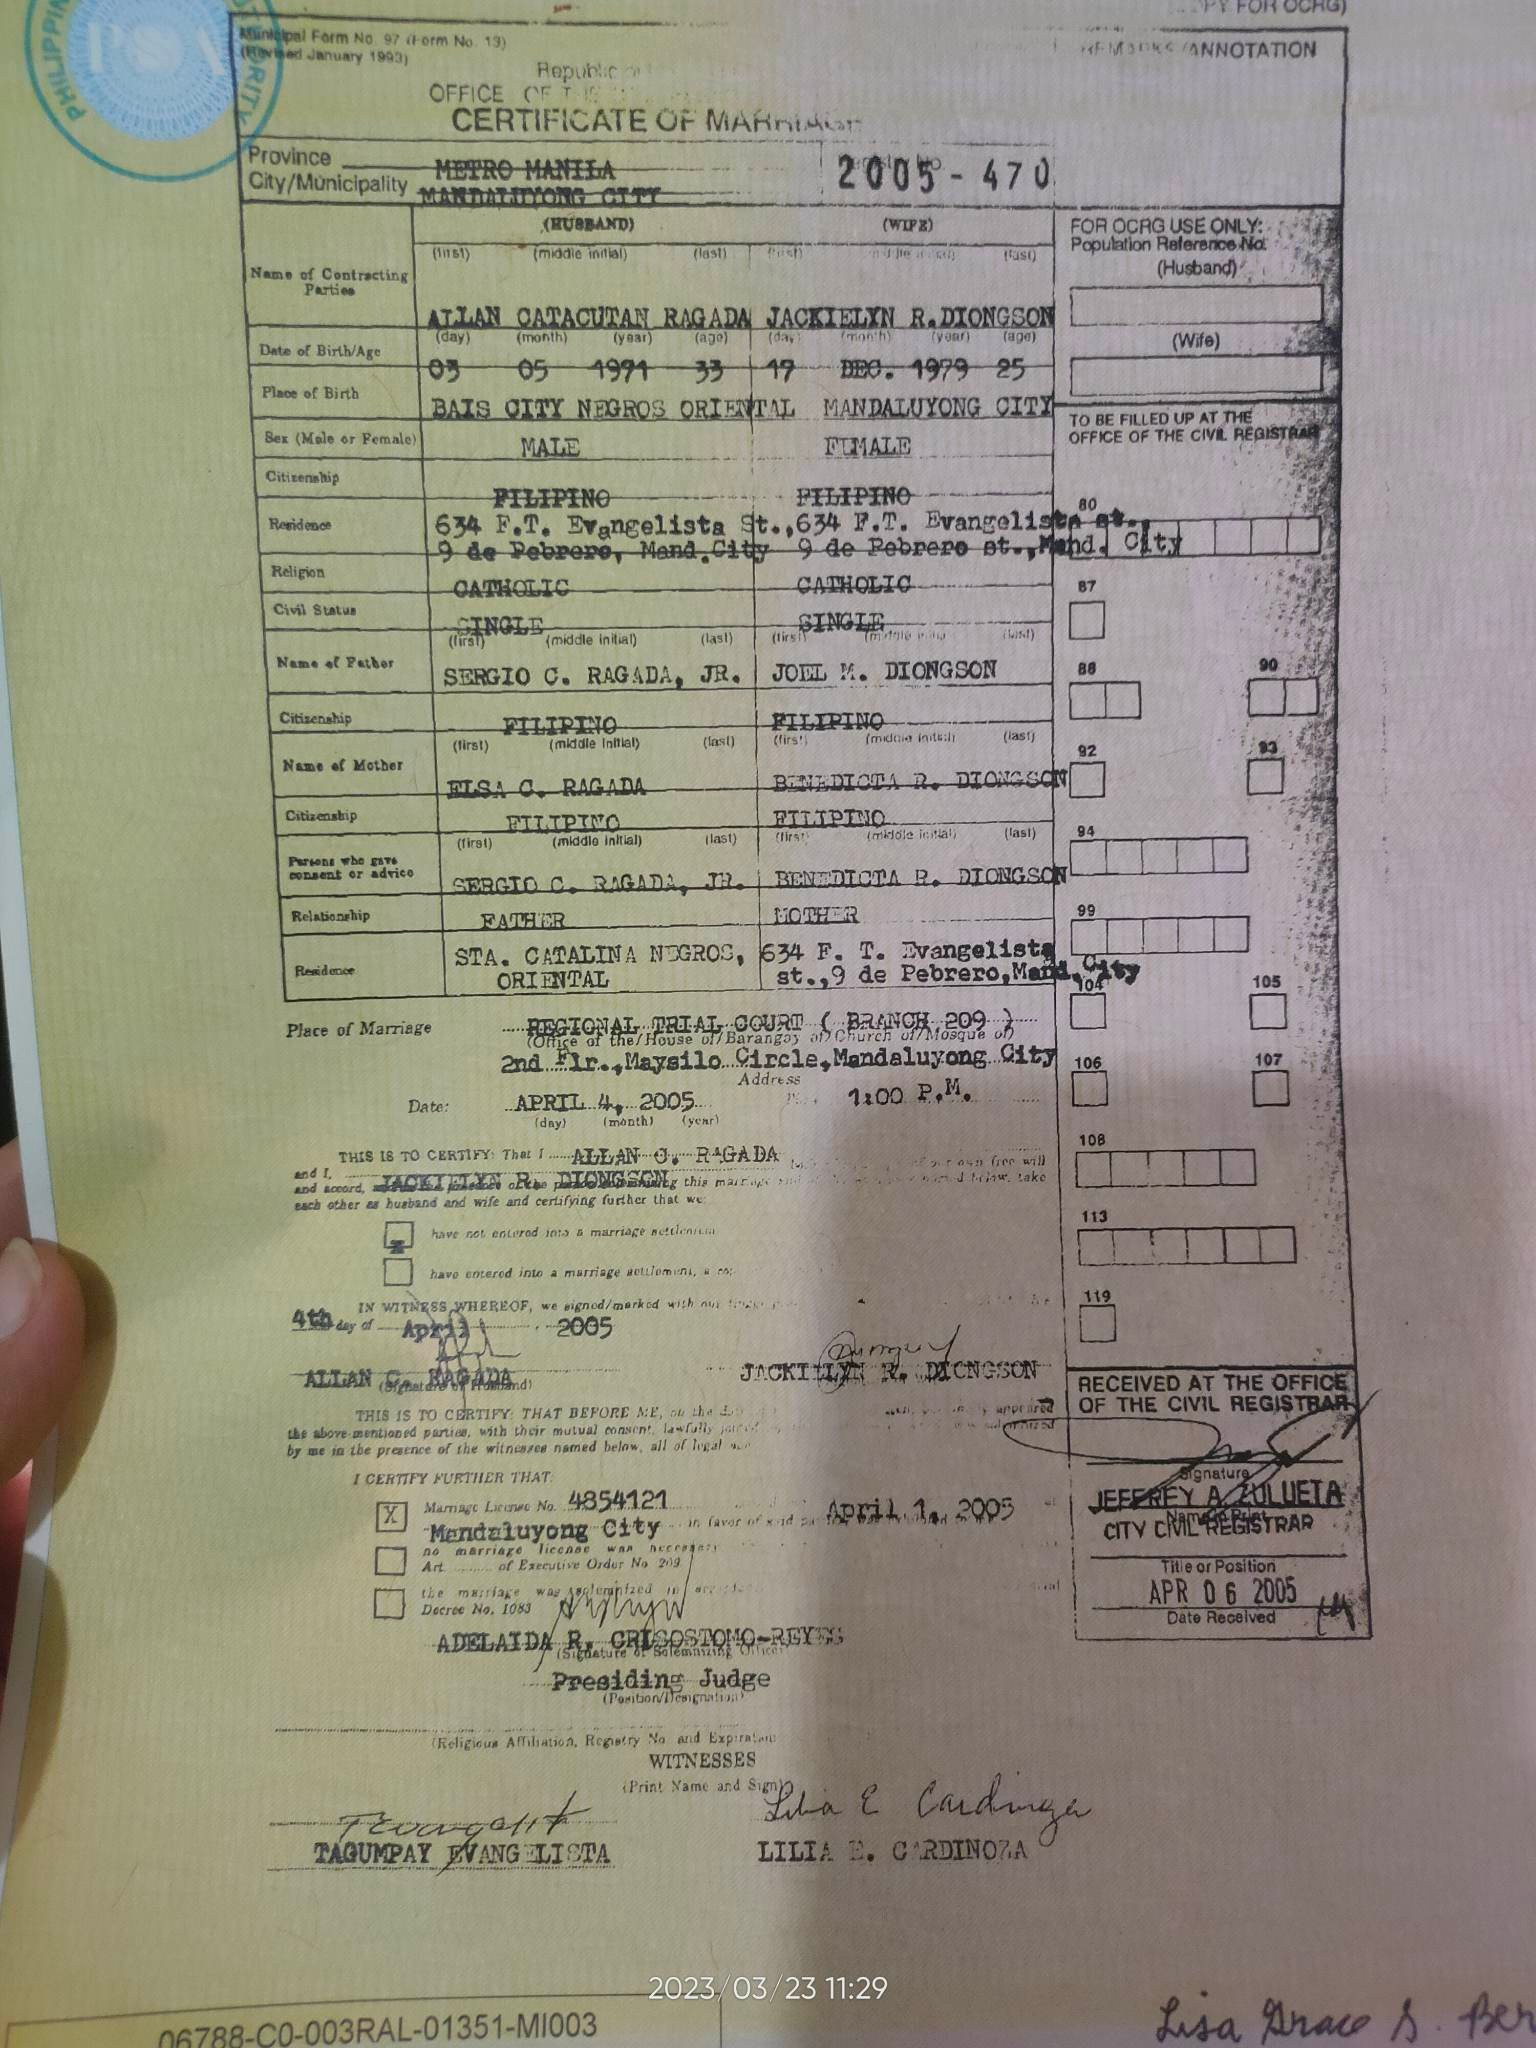 PHILIPPIN
COPY FOR OCRG)
Municipal Form No. 97 (Form No. 13)
(Revised January 1993)
REMARKS/ANNOTATION
Republic
OFFICE OF THE
CERTIFICATE OF MARRIAGE
Province METRO MANILA
City/Municipality MANDALUYONG CITY
2005-470
(HUSBAND) (WIFE)
(first) (middle initial) (last) (first) (middle initial) (last)
Name of Contracting Parties
ALLAN CATACUTAN RAGADA JACKIELYN R.DIONGSON
(day) (month) (year) (age) (day) (month) (year) (age)
Date of Birth/Age
03 05 1971 33 17 DEC. 1979 25
Place of Birth
BAIS CITY NEGROS ORIENTAL MANDALUYONG CITY
Sex (Male or Female) MALE FEMALE
Citizenship
FILIPINO FILIPINO
Residence
634 F.T. Evangelista St., 634 F.T. Evangelista st.,
9 de Pebrero, Mand.City 9 de Pebrero st.,Mand. City
Religion
CATHOLIC CATHOLIC
Civil Status
SINGLE SINGLE
(first) (middle initial) (last) (first) (middle initial) (last)
Name of Father
SERGIO C. RAGADA, JR. JOEL M. DIONGSON
Citizenship
FILIPINO FILIPINO
(first) (middle initial) (last) (first) (middle initial) (last)
Name of Mother
ELSA C. RAGADA BENEDICTA R. DIONGSON
Citizenship
FILIPINO FILIPINO
(first) (middle initial) (last) (first) (middle initial) (last)
Persons who gave
consent or advice
SERGIO C. RAGADA, JR. BENEDICTA R. DIONGSON
Relationship
FATHER MOTHER
Residence
STA. CATALINA NEGROS, 634 F. T. Evangelista
ORIENTAL st.,9 de Pebrero,Mand.City
Place of Marriage REGIONAL TRIAL COURT ( BRANCH 209 )
(Office of the/House of/Barangay of/Church of/Mosque of)
2nd Flr.,Maysilo Circle,Mandaluyong City
Address
Date: APRIL 4, 2005 1:00 P.M.
(day) (month) (year)
THIS IS TO CERTIFY: That I ALLAN C. RAGADA
and I, JACKIELYN R. DIONGSON of our own free will
and accord, this marriage take
each other as husband and wife and certifying further that we:
have not entered into a marriage settlement
have entered into a marriage settlement, a
IN WITNESS WHEREOF, we signed/marked with our
4th day of April 2005
ALLAN C. RAGADA JACKIELYN R. DIONGSON
(Signature of Husband)
THIS IS TO CERTIFY: THAT BEFORE ME, on the appeared
the above-mentioned parties, with their mutual consent, lawfully
by me in the presence of the witnesses named below, all of legal
I CERTIFY FURTHER THAT:
X Marriage License No. 4854121 April 1, 2005
Mandaluyong City in favor of said
no marriage license was necessary
Art. of Executive Order No. 209
the marriage was solemnized in
Decree No. 1083
ADELAIDA R. CRISOSTOMO-REYES
(Signature of Solemnizing Officer)
Presiding Judge
(Position/Designation)
(Religious Affiliation, Registry No. and Expiration
WITNESSES
(Print Name and Sign)
Lilia E Cardinoza
TAGUMPAY EVANGELISTA LILIA E. CARDINOZA
FOR OCRG USE ONLY:
Population Reference No.
(Husband)
(Wife)
TO BE FILLED UP AT THE
OFFICE OF THE CIVIL REGISTRAR
80
87
88 90
92 93
94
99
104 105
106 107
108
113
119
RECEIVED AT THE OFFICE
OF THE CIVIL REGISTRAR
Signature
JEFFREY A. ZULUETA
Name in Print
CITY CIVIL REGISTRAR
Title or Position
APR 06 2005
Date Received
2023/03/23 11:29
06788-C0-003RAL-01351-MI003
Lisa Grace S. Ber